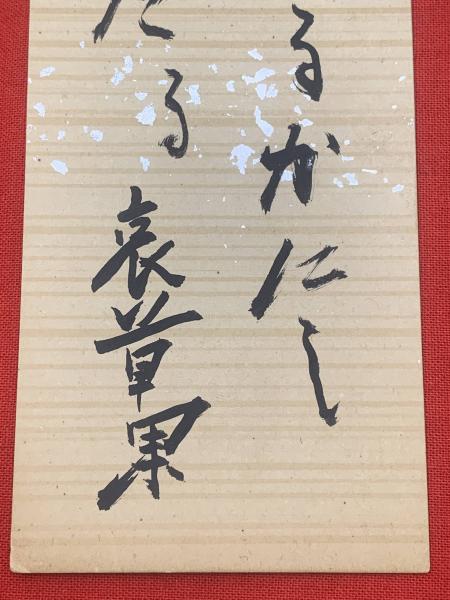 るかにし
たる 哀草果